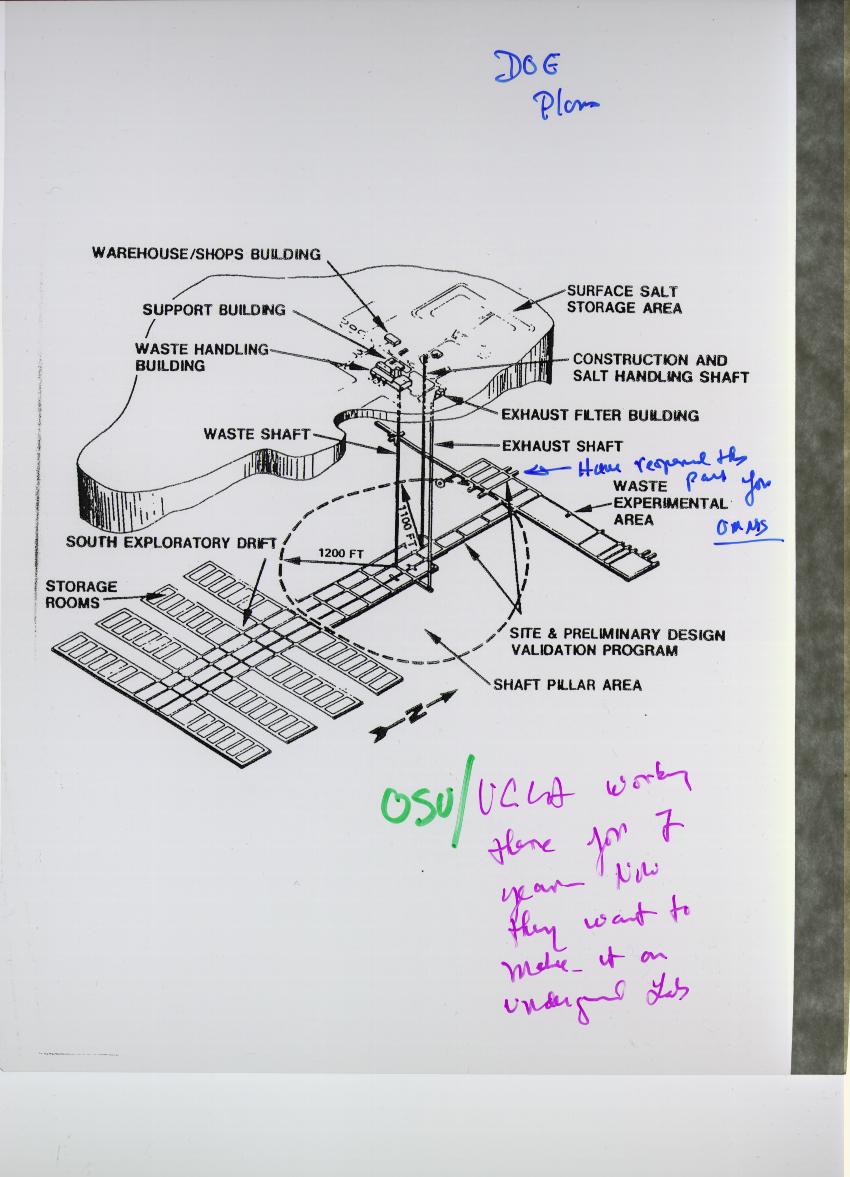 DOE
Plan
WAREHOUSE/SHOPS BUILDING
SURFACE SALT
STORAGE AREA
SUPPORT BUILDING
WASTE HANDLING
BUILDING
CONSTRUCTION AND
SALT HANDLING SHAFT
EXHAUST FILTER BUILDING
WASTE SHAFT
EXHAUST SHAFT
Have reopened this
part for
OMNIS
WASTE
EXPERIMENTAL
AREA
1100 FT
SOUTH EXPLORATORY DRIFT
1200 FT
STORAGE
ROOMS
SITE & PRELIMINARY DESIGN
VALIDATION PROGRAM
SHAFT PILLAR AREA
N
OSU/UCLA working
there for 7
years Now
they want to
make it an
undergrnd Lab